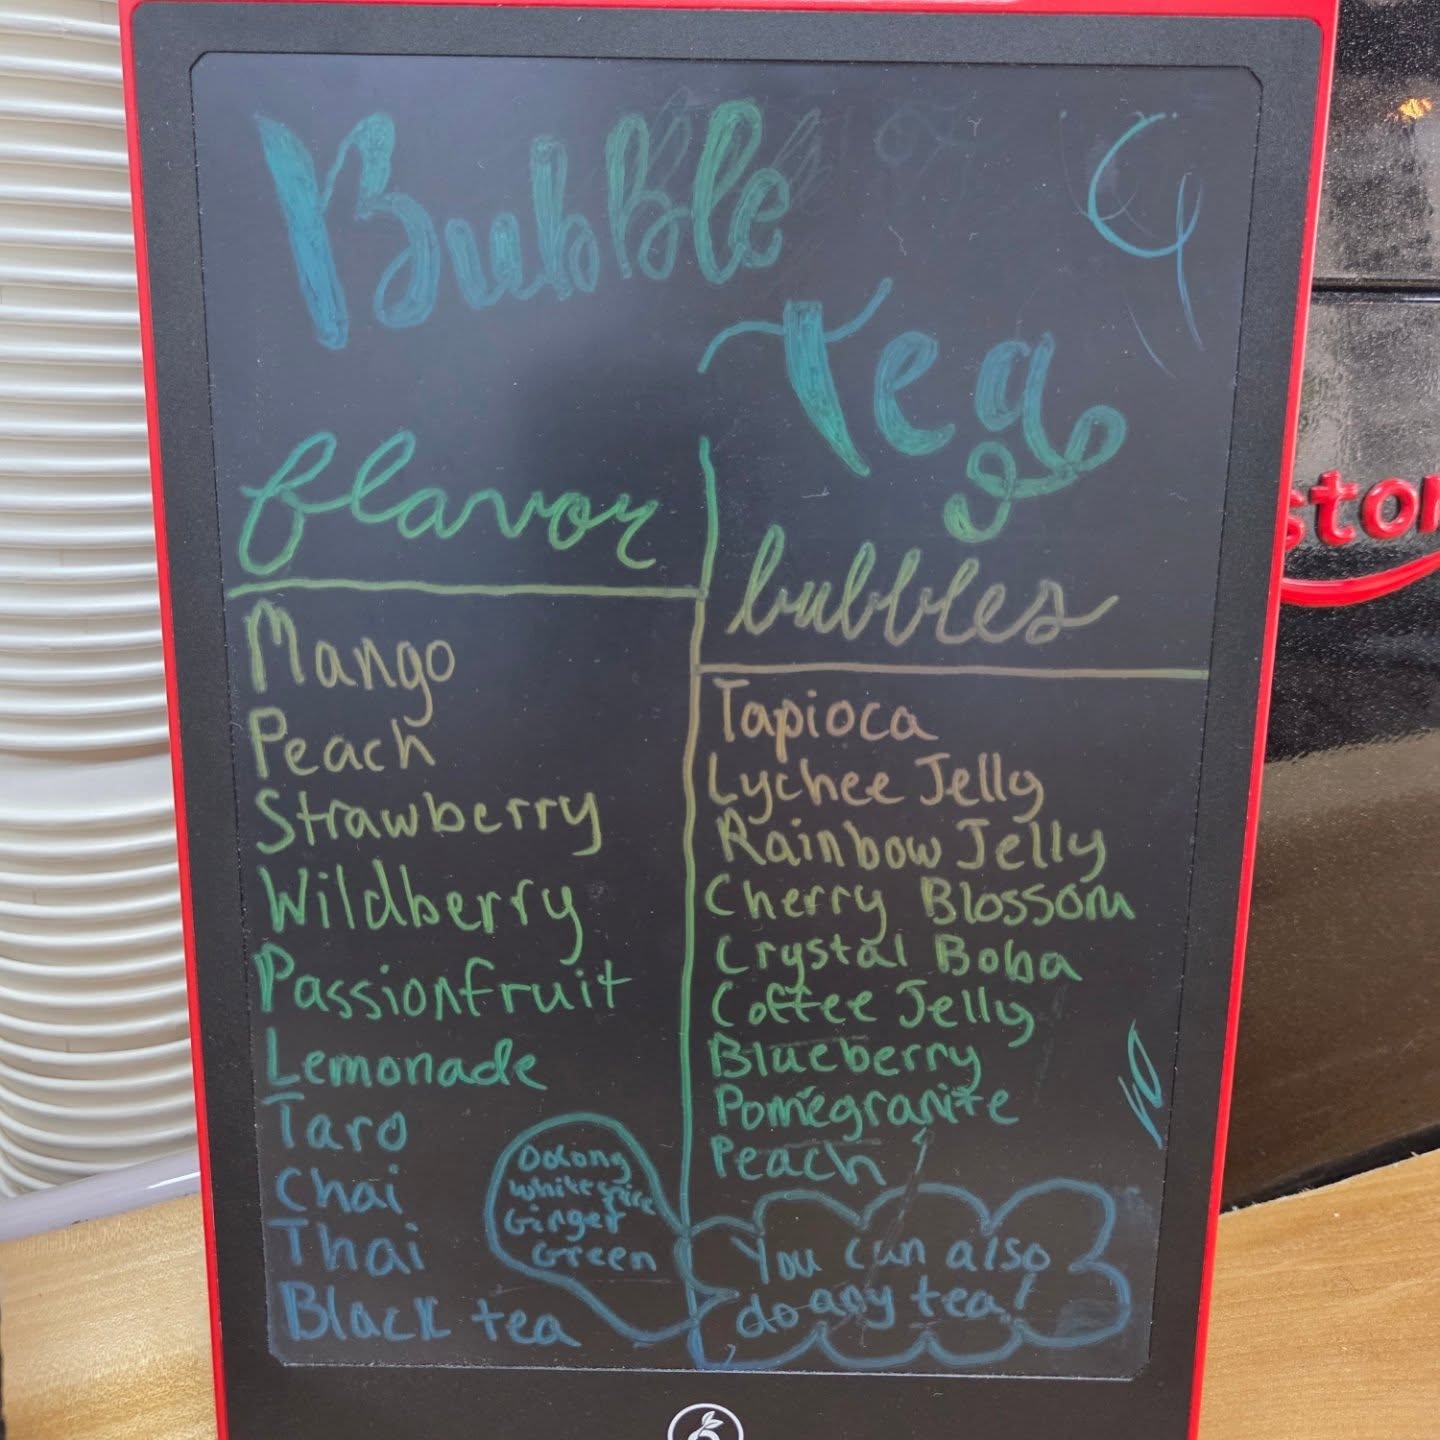 BubBle
Tea
flavor
Mango
Peach
Strawberry
Wildberry
Passionfruit
Lemonade
Taro
Chai
Thai
Black tea
Oolong
White
Ginger
Green
bubbles
Tapioca
Lychee Jelly
Rainbow Jelly
Cherry Blossom
Crystal Boba
Coffee Jelly
Blueberry
Pomegranite
Peach
You can also
do any tea!
ston